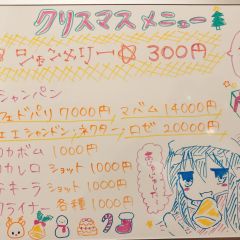 クリスマスメニュー
シャンメリー 300円
シャンパン
フェドパリ 7000円 マバム 14000円
エ シャンドン ネクター ロゼ 20000円
コカボム 1000円
コカレロ ショット 1000円
テキーラ ショット 1000円
クライナー 各種 1000円